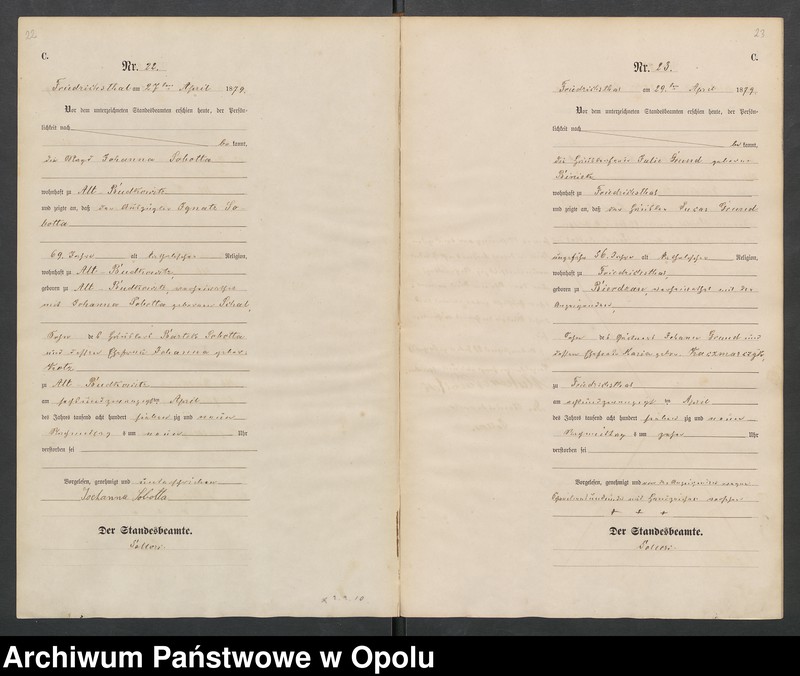 22
C.
Nr. 22.
Friedrichsthal am 27ten April 1879.
Vor dem unterzeichneten Standesbeamten erschien heute, der Persön-
lichkeit nach
be kannt,
die Magd Johanna Sobotta
wohnhaft zu Alt
und zeigte an, daß der Auszügler Ignatz So-
botta
69 Jahre alt katholischer Religion,
wohnhaft zu Alt
geboren zu Alt verheirathet
mit Johanna Sobotta geborenen
Sohn des Häuslers Sobotta
und dessen Ehefrau Johanna gebor.
zu Alt
am sechsundzwanzigsten April
des Jahres tausend acht hundert sieben zig und neun
Nachmittag s um neun Uhr
verstorben sei
Vorgelesen, genehmigt und unterschrieben
Johanna Sobotta
Der Standesbeamte.
23
C.
Nr. 23.
Friedrichsthal am 29ten April 1879.
Vor dem unterzeichneten Standesbeamten erschien heute, der Persön-
lichkeit nach
be kannt,
die Häuslerfrau Julie geborene
wohnhaft zu Friedrichsthal
und zeigte an, daß der Häusler Lucas
ungefähr 56 Jahre alt katholischer Religion,
wohnhaft zu Friedrichsthal,
geboren zu verheirathet mit der
Anzeigenden,
Sohn des Johann und
dessen Ehefrau Maria gebor. Kaczmarczyk,
zu Friedrichsthal
am achtundzwanzigsten April
des Jahres tausend acht hundert sieben zig und neun
Nachmittag s um zehn Uhr
verstorben sei
Vorgelesen, genehmigt und von der Anzeigenden wegen
Schreibensunkunde mit Handzeichen versehen
+ + +
Der Standesbeamte.
Archiwum Państwowe w Opolu